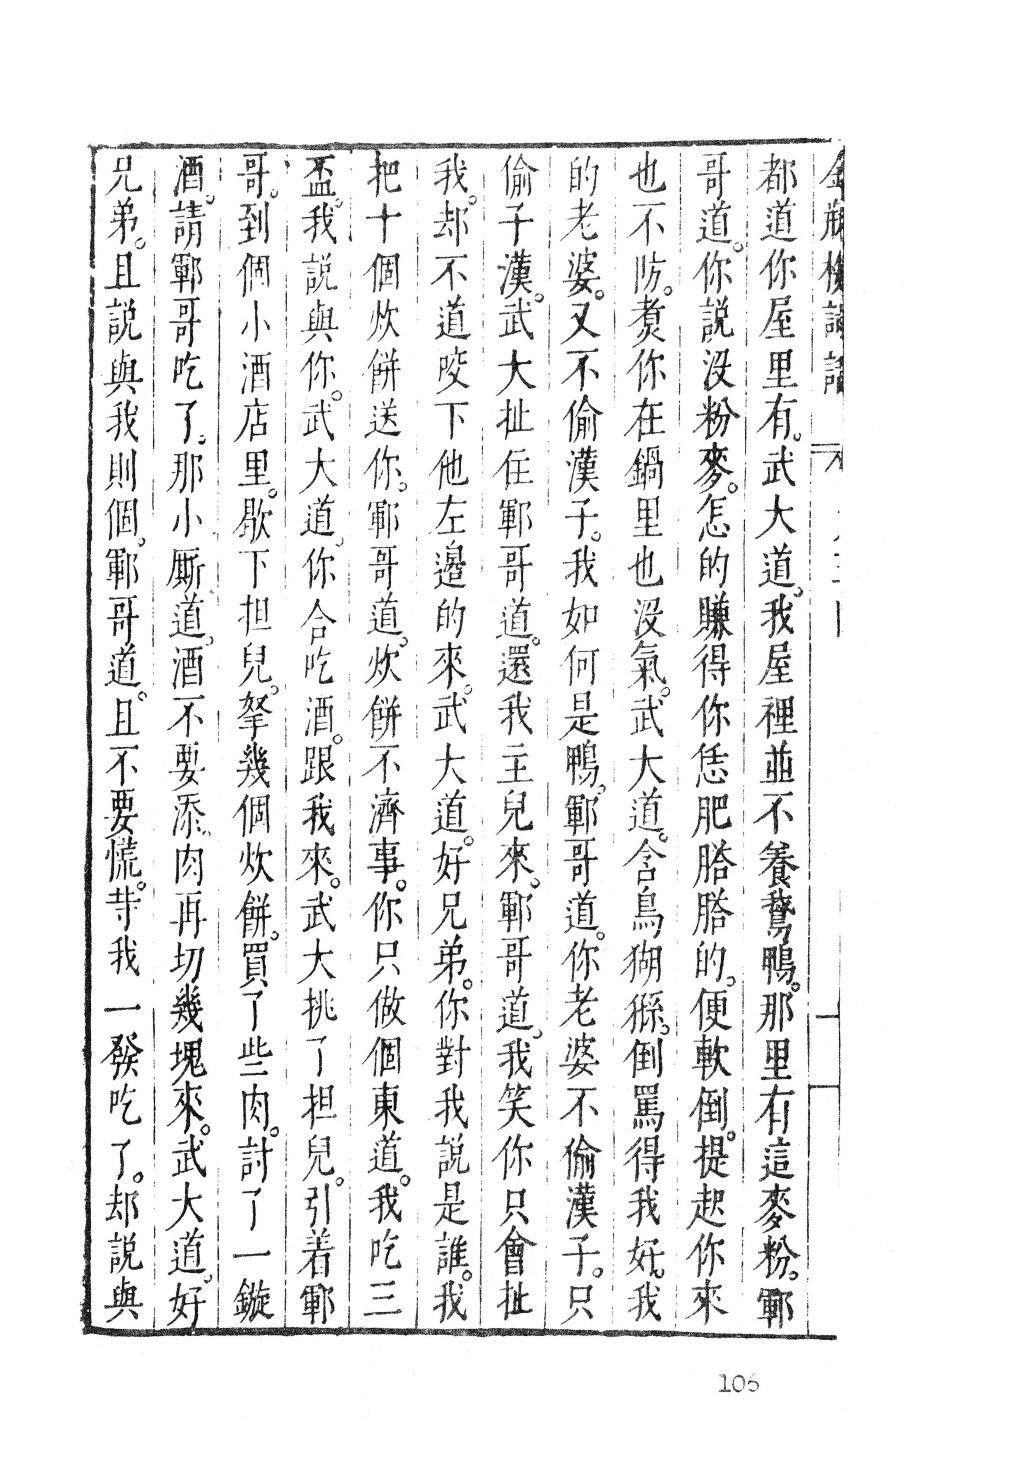 金瓶梅詞話
都道你屋里有。武大道。我屋裡並不養鵝鴨。那里有這麥粉。鄆
哥道。你說没粉麥。怎的賺得你恁肥䐛䐛的。便軟倒。提起你來
也不防。煑你在鍋里也没氣。武大道。含鳥猢猻。倒罵得我好。我
的老婆。又不偷漢子。我如何是鴨。鄆哥道。你老婆不偷漢子。只
偷子漢。武大扯住鄆哥道。還我主兒來。鄆哥道。我笑你只會扯
我。却不道咬下他左邉的來。武大道。好兄弟。你對我說是誰。我
把十個炊餅送你。鄆哥道。炊餅不濟事。你只做個東道。我吃三
盃。我說與你。武大道。你合吃酒。跟我來。武大挑了担兒。引着鄆
哥。到個小酒店里。歇下担兒。拏幾個炊餅。買了些肉。討了一鏇
酒。請鄆哥吃了。那小厮道。酒不要添。肉再切幾塊來。武大道。好
兄弟。且說與我則個。鄆哥道。且不要慌。䓁我一發吃了。却說與
106